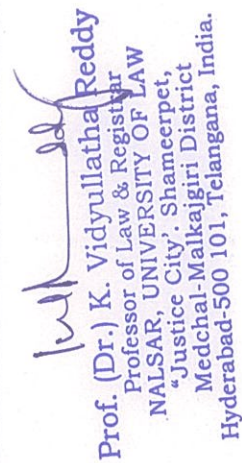 Prof. (Dr.) K. Vidyullatha Reddy
Professor of Law & Registrar
NALSAR, UNIVERSITY OF LAW
"Justice City'. Shameerpet,
Medchal-Malkajgiri District
Hyderabad-500 101, Telangana, India.